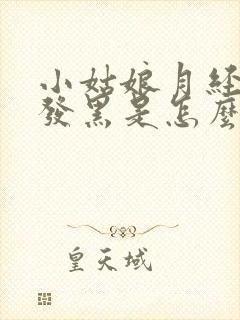 小姑娘月经
發黑是怎麼
皇天域